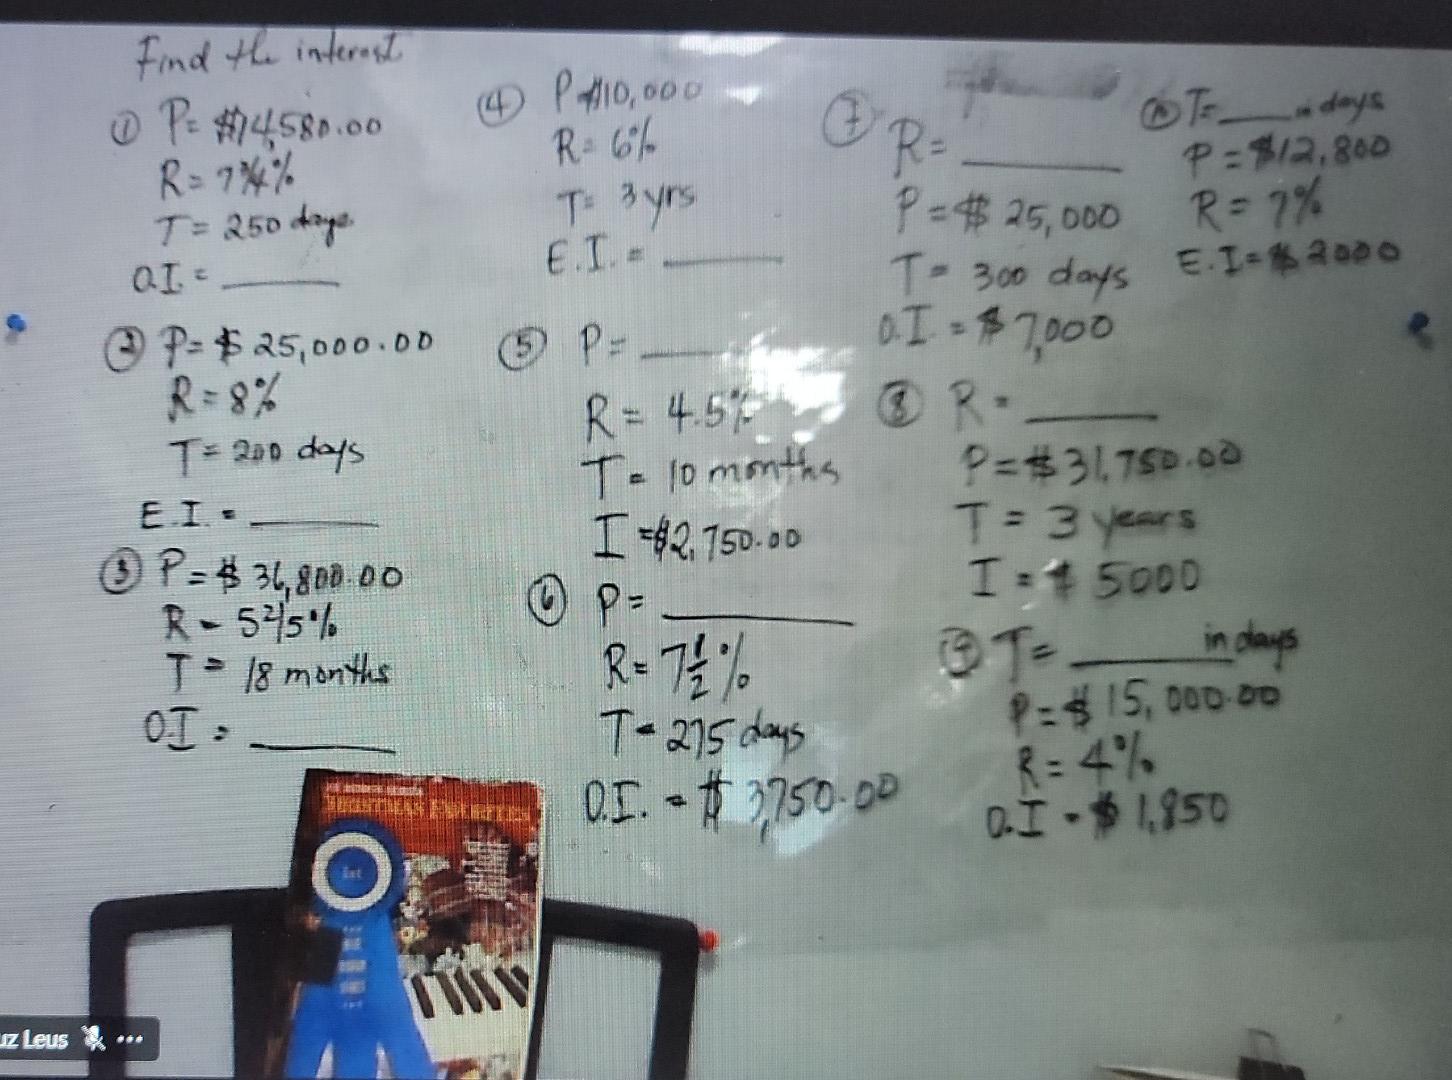 Find the interest
① P= $14,580.00
R= 7¾%
T= 250 days
O.I. = ____
② P= $ 25,000.00
R = 8%
T= 200 days
E.I. = ____
③ P= $ 36,800.00
R = 5 2/5 %
T = 18 months
O.I = ____
④ P $10,000
R= 6%
T= 3 yrs
E.I. = ____
⑤ P= ____
R = 4.5%
T = 10 months
I =$2,750.00
⑥ P= ____
R= 7½%
T= 275 days
O.I. = $ 3,750.00
⑦ R= ____
P=$ 25,000
T= 300 days
O.I. = $ 7,000
⑧ R = ____
P=$31,750.00
T = 3 years
I = $ 5000
⑨ T= ____ in days
P=$ 15,000.00
R= 4%
O.I = $ 1,850
⑩ T= ____ in days
P = $12,800
R= 7%
E.I=$ 2000
uz Leus